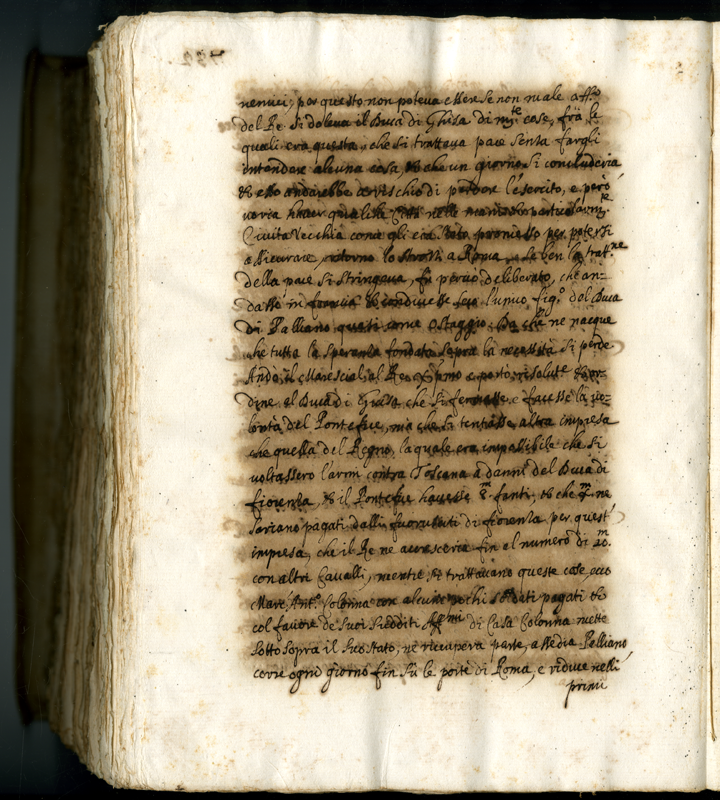 nemici; per questo non poteva essere se non male affto
del Re. Si doleva il Duca di Ghisa di mte cose, frà le
quali era questa, che si trattava pace senza fargli
intendere alcuna cosa, & che un giorno si concluderia
& esso andarebbe à rischio di perdere l'esercito, e però
voria haver qualche Città nelle mani
Civita Vecchia come gli era stato promesso per potersi
assicurare, ritorno lo Strozzi a Roma, e se ben la tratt.ne
della pace si stringeva, fu perciò deliberato, che an-
dasse in francia & conducesse seco l'unico fig.o del Duca
di Palliano quasi come Ostaggio, Da che ne nacque
che tutta la speranza fondata sopra la necessità si perde
Andò il Marescial, al Re e portò risolute & or-
dine al Duca di Ghisa che si fermasse e facesse la vo-
lontà del Pontefice, ma che si tentasse altra impresa
che quella del Regno, la quale era impossibile che si
voltassero l'armi contra Toscana a danni del Duca di
fiorenza, & il Pontefice havesse fanti, & che ne
sariano pagati dalli fuorusciti di fiorenza per quest'
impresa, che il Re ne accresceria fin al numero di 20.m
con altri Cavalli, mentre si trattavano queste cose, ecco
Marc' Ant.o Colonna con alcuni pochi soldati pagati &
col favore de suoi Sudditi di Casa Colonna mette
sotto sopra il suo stato, nè ricupera parte, assedia Palliano
corre ogni giorno fin sù le porte di Roma, e riduce nelli
primi